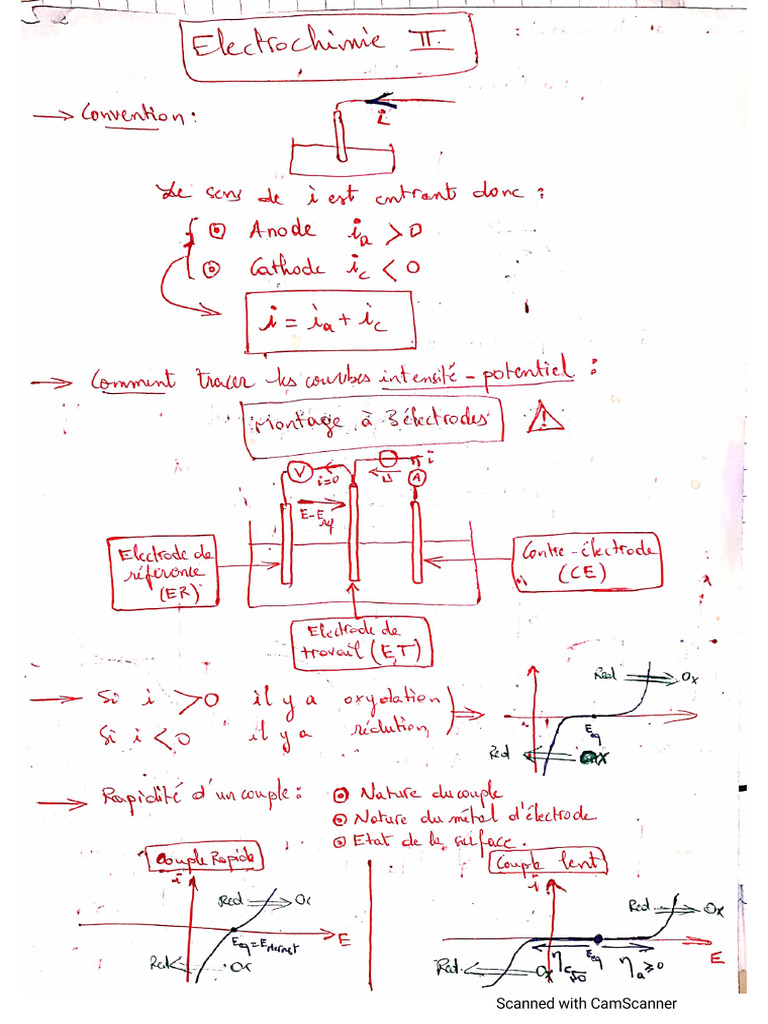 Electrochimie II.
→ Convention :
i
Le sens de i est entrant donc :
Anode ia > 0
Cathode ic < 0
i = ia + ic
→ Comment tracer les courbes intensité - potentiel :
Montage à 3 électrodes
V
i=0
i
A
E - Eref
Electrode de
référence
(ER)
Contre - électrode
(CE)
Electrode de
travail (ET)
→ Si i > 0 il y a oxydation
Si i < 0 il y a réduction
Red
Ox
Eeq
Red
Ox
→ Rapidité d'un couple :
Nature du couple
Nature du métal d'électrode
Etat de la surface.
Couple Rapide
Couple lent
i
Red
Ox
Eeq = Enernst
E
Red
Ox
i
Red
Ox
Eeq
ηc ≤ 0
ηa ≥ 0
E
Red
Ox
Scanned with CamScanner